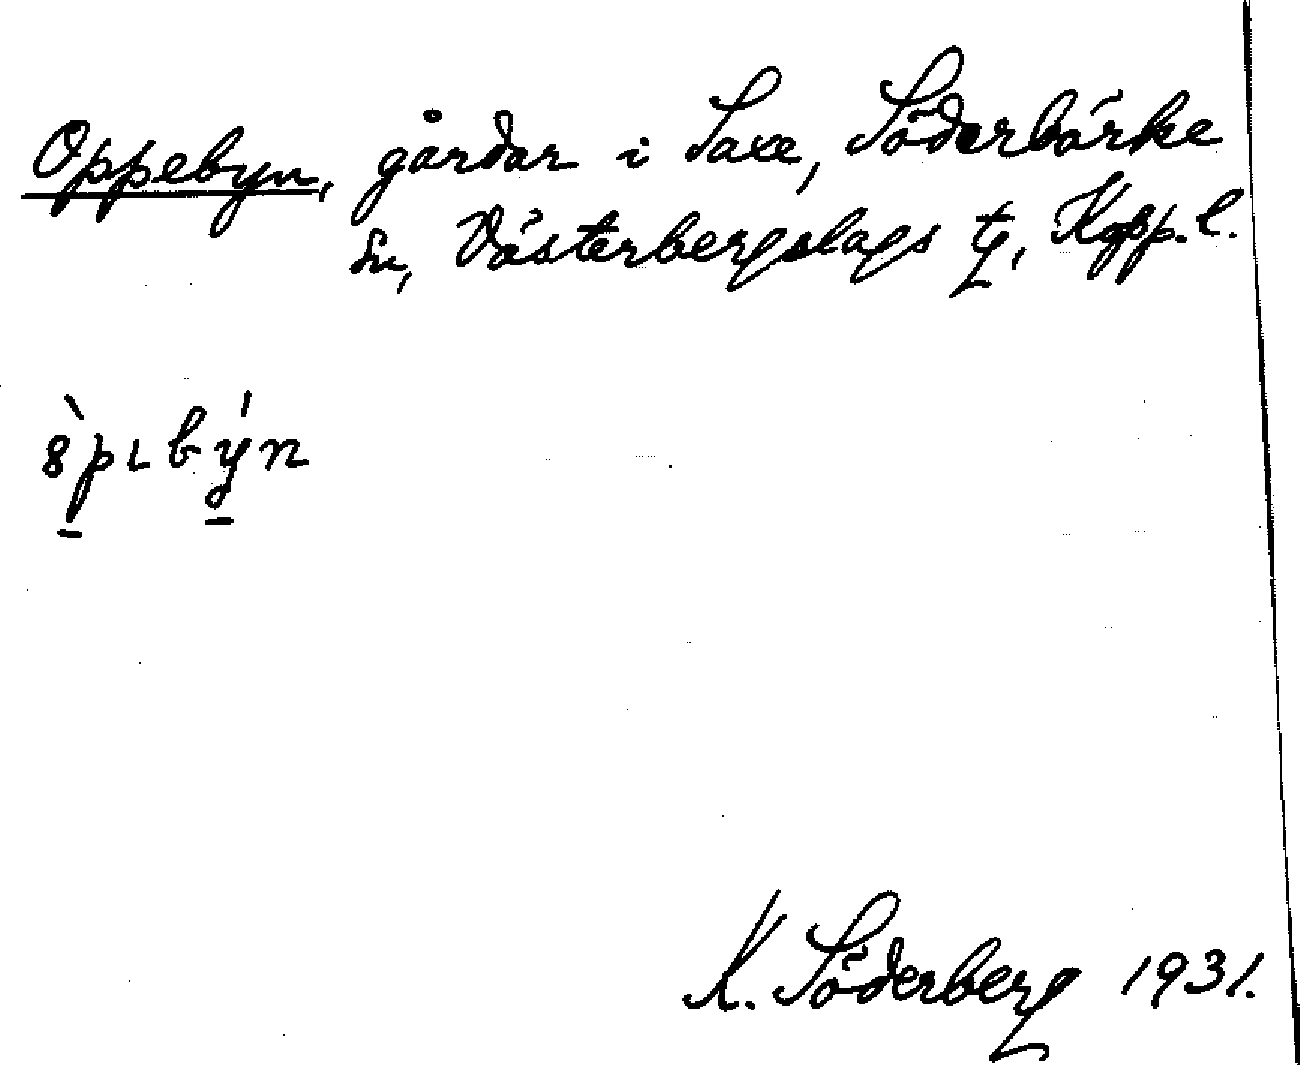 Oppebyn, gårdar i Saxe, Söderbärke
sn, Västerbergslags tg, Kopp. l.
8̀pɩbýn
K. Söderberg 1931.